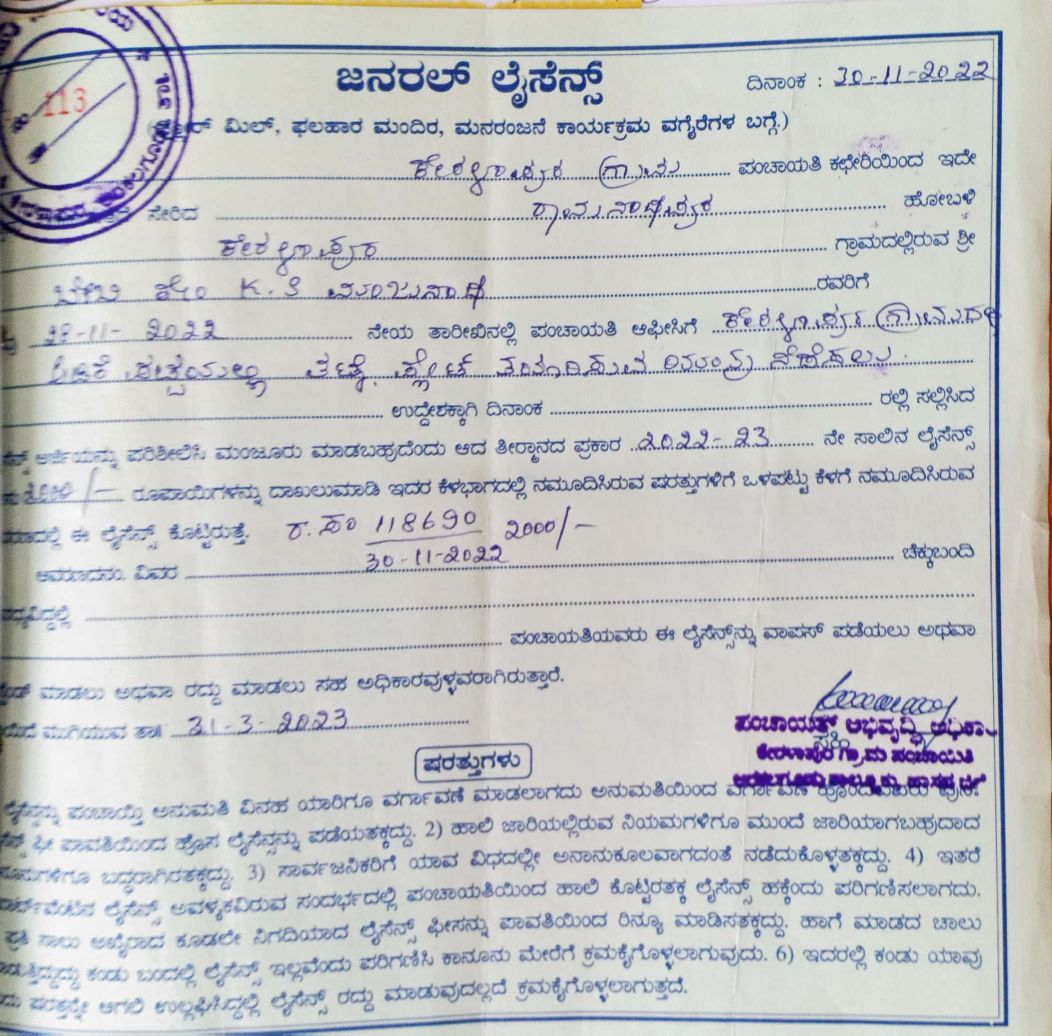 113
ಜನರಲ್ ಲೈಸೆನ್ಸ್
ದಿನಾಂಕ : 30-11-2022
ಮಿಲ್, ಫಲಹಾರ ಮಂದಿರ, ಮನರಂಜನೆ ಕಾರ್ಯಕ್ರಮ ವಗೈರೆಗಳ ಬಗ್ಗೆ.)
ಕೇರಳಾಪುರ ಗ್ರಾಮ ಪಂಚಾಯತಿ ಕಛೇರಿಯಿಂದ ಇದೇ
ಸೇರಿದ ರಾಮನಾಥಪುರ ಹೋಬಳಿ
ಕೇರಳಾಪುರ ಗ್ರಾಮದಲ್ಲಿರುವ ಶ್ರೀ
ಬೇಬಿ ಕೋಂ K.S ಮಂಜುನಾಥ ರವರಿಗೆ
28-11-2022 ನೇಯ ತಾರೀಖಿನಲ್ಲಿ ಪಂಚಾಯತಿ ಆಫೀಸಿಗೆ ಕೇರಳಾಪುರ ಗ್ರಾಮದಲ್ಲಿ
ಅಡಿಕೆ ತಟ್ಟೆ, ಪ್ಲೇಟ್ ತಯಾರಿಸುವ ನಡೆಸಲು.
ಉದ್ದೇಶಕ್ಕಾಗಿ ದಿನಾಂಕ ರಲ್ಲಿ ಸಲ್ಲಿಸಿದ
ಅರ್ಜಿಯನ್ನು ಪರಿಶೀಲಿಸಿ ಮಂಜೂರು ಮಾಡಬಹುದೆಂದು ಆದ ತೀರ್ಮಾನದ ಪ್ರಕಾರ 2022-23 ನೇ ಸಾಲಿನ ಲೈಸೆನ್ಸ್
2000/- ರೂಪಾಯಿಗಳನ್ನು ದಾಖಲುಮಾಡಿ ಇದರ ಕೆಳಭಾಗದಲ್ಲಿ ನಮೂದಿಸಿರುವ ಷರತ್ತುಗಳಿಗೆ ಒಳಪಟ್ಟು ಕೆಳಗೆ ನಮೂದಿಸಿರುವ
ಈ ಲೈಸೆನ್ಸ್ ಕೊಟ್ಟಿರುತ್ತೆ. ರ.ಸಂ 118690 2000/-
30-11-2022
ವಿವರ ಚೆಕ್ಕುಬಂದಿ
ಪಂಚಾಯತಿಯವರು ಈ ಲೈಸೆನ್ಸ್‌ನ್ನು ವಾಪಸ್ ಪಡೆಯಲು ಅಥವಾ
ಮಾಡಲು ಅಥವಾ ರದ್ದು ಮಾಡಲು ಸಹ ಅಧಿಕಾರವುಳ್ಳವರಾಗಿರುತ್ತಾರೆ.
ಮುಗಿಯುವ ತಾ॥ 31-3-2023
ಸಹಿ
ಪಂಚಾಯತ್ ಅಭಿವೃದ್ಧಿ ಅಧಿಕಾರಿ
ಕೇರಳಾಪುರ ಗ್ರಾಮ ಪಂಚಾಯಿತಿ
ಅರಕಲಗೂಡು ತಾಲ್ಲೂಕು, ಹಾಸನ ಜಿಲ್ಲೆ
ಷರತ್ತುಗಳು
ಪಂಚಾಯ್ತಿ ಅನುಮತಿ ವಿನಹ ಯಾರಿಗೂ ವರ್ಗಾವಣೆ ಮಾಡಲಾಗದು ಅನುಮತಿಯಿಂದ ವರ್ಗಾವಣೆ
ಫೀ ಪಾವತಿಯಿಂದ ಹೊಸ ಲೈಸೆನ್ಸನ್ನು ಪಡೆಯತಕ್ಕದ್ದು. 2) ಹಾಲಿ ಜಾರಿಯಲ್ಲಿರುವ ನಿಯಮಗಳಿಗೂ ಮುಂದೆ ಜಾರಿಯಾಗಬಹುದಾದ
ಬದ್ಧರಾಗಿರತಕ್ಕದ್ದು. 3) ಸಾರ್ವಜನಿಕರಿಗೆ ಯಾವ ವಿಧದಲ್ಲೀ ಅನಾನುಕೂಲವಾಗದಂತೆ ನಡೆದುಕೊಳ್ಳತಕ್ಕದ್ದು. 4) ಇತರೆ
ಲೈಸೆನ್ಸ್ ಅವಶ್ಯಕವಿರುವ ಸಂದರ್ಭದಲ್ಲಿ ಪಂಚಾಯತಿಯಿಂದ ಹಾಲಿ ಕೊಟ್ಟಿರತಕ್ಕ ಲೈಸೆನ್ಸ್ ಹಕ್ಕೆಂದು ಪರಿಗಣಿಸಲಾಗದು.
ಪ್ರತಿ ಸಾಲು ಅಖೈರಾದ ಕೂಡಲೇ ನಿಗದಿಯಾದ ಲೈಸೆನ್ಸ್ ಫೀಸನ್ನು ಪಾವತಿಯಿಂದ ರಿನ್ಯೂ ಮಾಡಿಸತಕ್ಕದ್ದು. ಹಾಗೆ ಮಾಡದ ಚಾಲು
ಕಂಡು ಬಂದಲ್ಲಿ ಲೈಸೆನ್ಸ್ ಇಲ್ಲವೆಂದು ಪರಿಗಣಿಸಿ ಕಾನೂನು ಮೇರೆಗೆ ಕ್ರಮಕೈಗೊಳ್ಳಲಾಗುವುದು. 6) ಇದರಲ್ಲಿ ಕಂಡು ಯಾವು
ಷರತ್ತನ್ನೇ ಆಗಲಿ ಉಲ್ಲಂಘಿಸಿದ್ದಲ್ಲಿ ಲೈಸೆನ್ಸ್ ರದ್ದು ಮಾಡುವುದಲ್ಲದೆ ಕ್ರಮಕೈಗೊಳ್ಳಲಾಗುತ್ತದೆ.